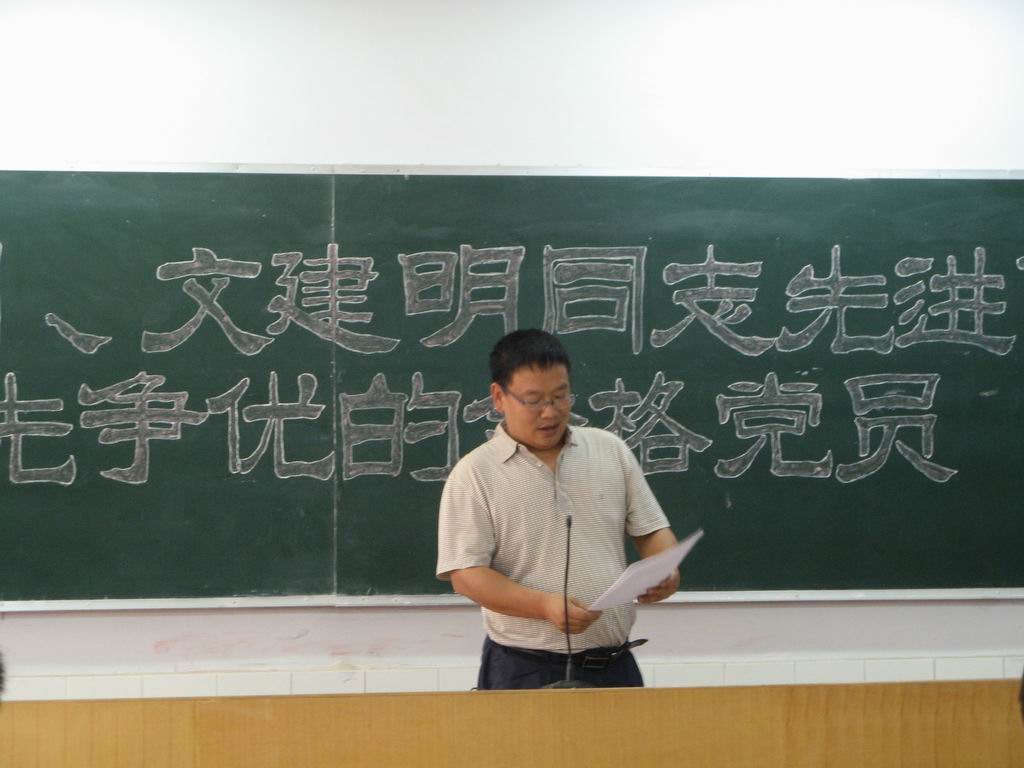 、文建明同志先进
先争优的合格党员